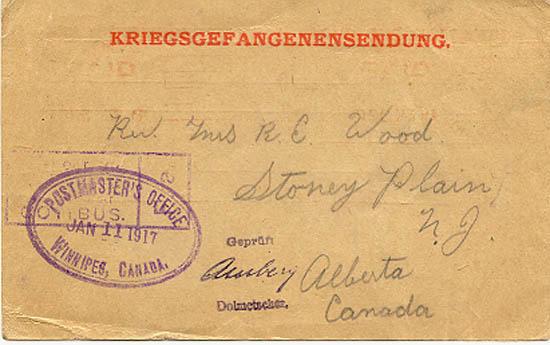 KRIEGSGEFANGENENSENDUNG.
Rev. R. E. Wood.
Stoney Plain
N. J.
Alberta
Canada
POSTMASTER'S OFFICE
BUS.
JAN 11 1917
WINNIPEG, CANADA.
Geprüft
Dolmetscher.